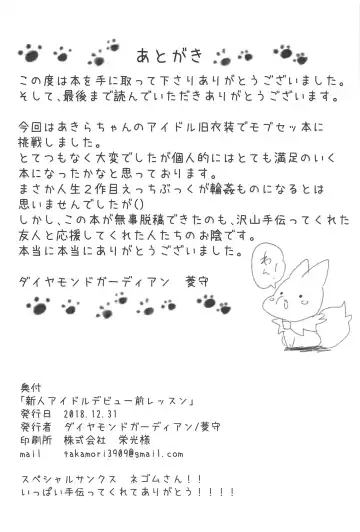 あとがき
この度は本を手に取って下さりありがとうございました。
そして、最後まで読んでいただきありがとうございます。
今回はあきらちゃんのアイドル旧衣装でモブセッ本に
挑戦しました。
とてつもなく大変でしたが個人的にはとても満足のいく
本になったかなと思っております。
まさか人生２作目えっちぶっくが輪姦ものになるとは
思いませんでしたが()
しかし、この本が無事脱稿できたのも、沢山手伝ってくれた
友人と応援してくれた人たちのお陰です。
本当に本当にありがとうございました。
わーん!
ダイヤモンドガーディアン　菱守
奥付
「新人アイドルデビュー前レッスン」
発行日　2018.12.31
発行者　ダイヤモンドガーディアン/菱守
印刷所　株式会社　栄光様
mail　takamori3909@gmail.com
スペシャルサンクス　ネゴムさん！！
いっぱい手伝ってくれてありがとう！！！！